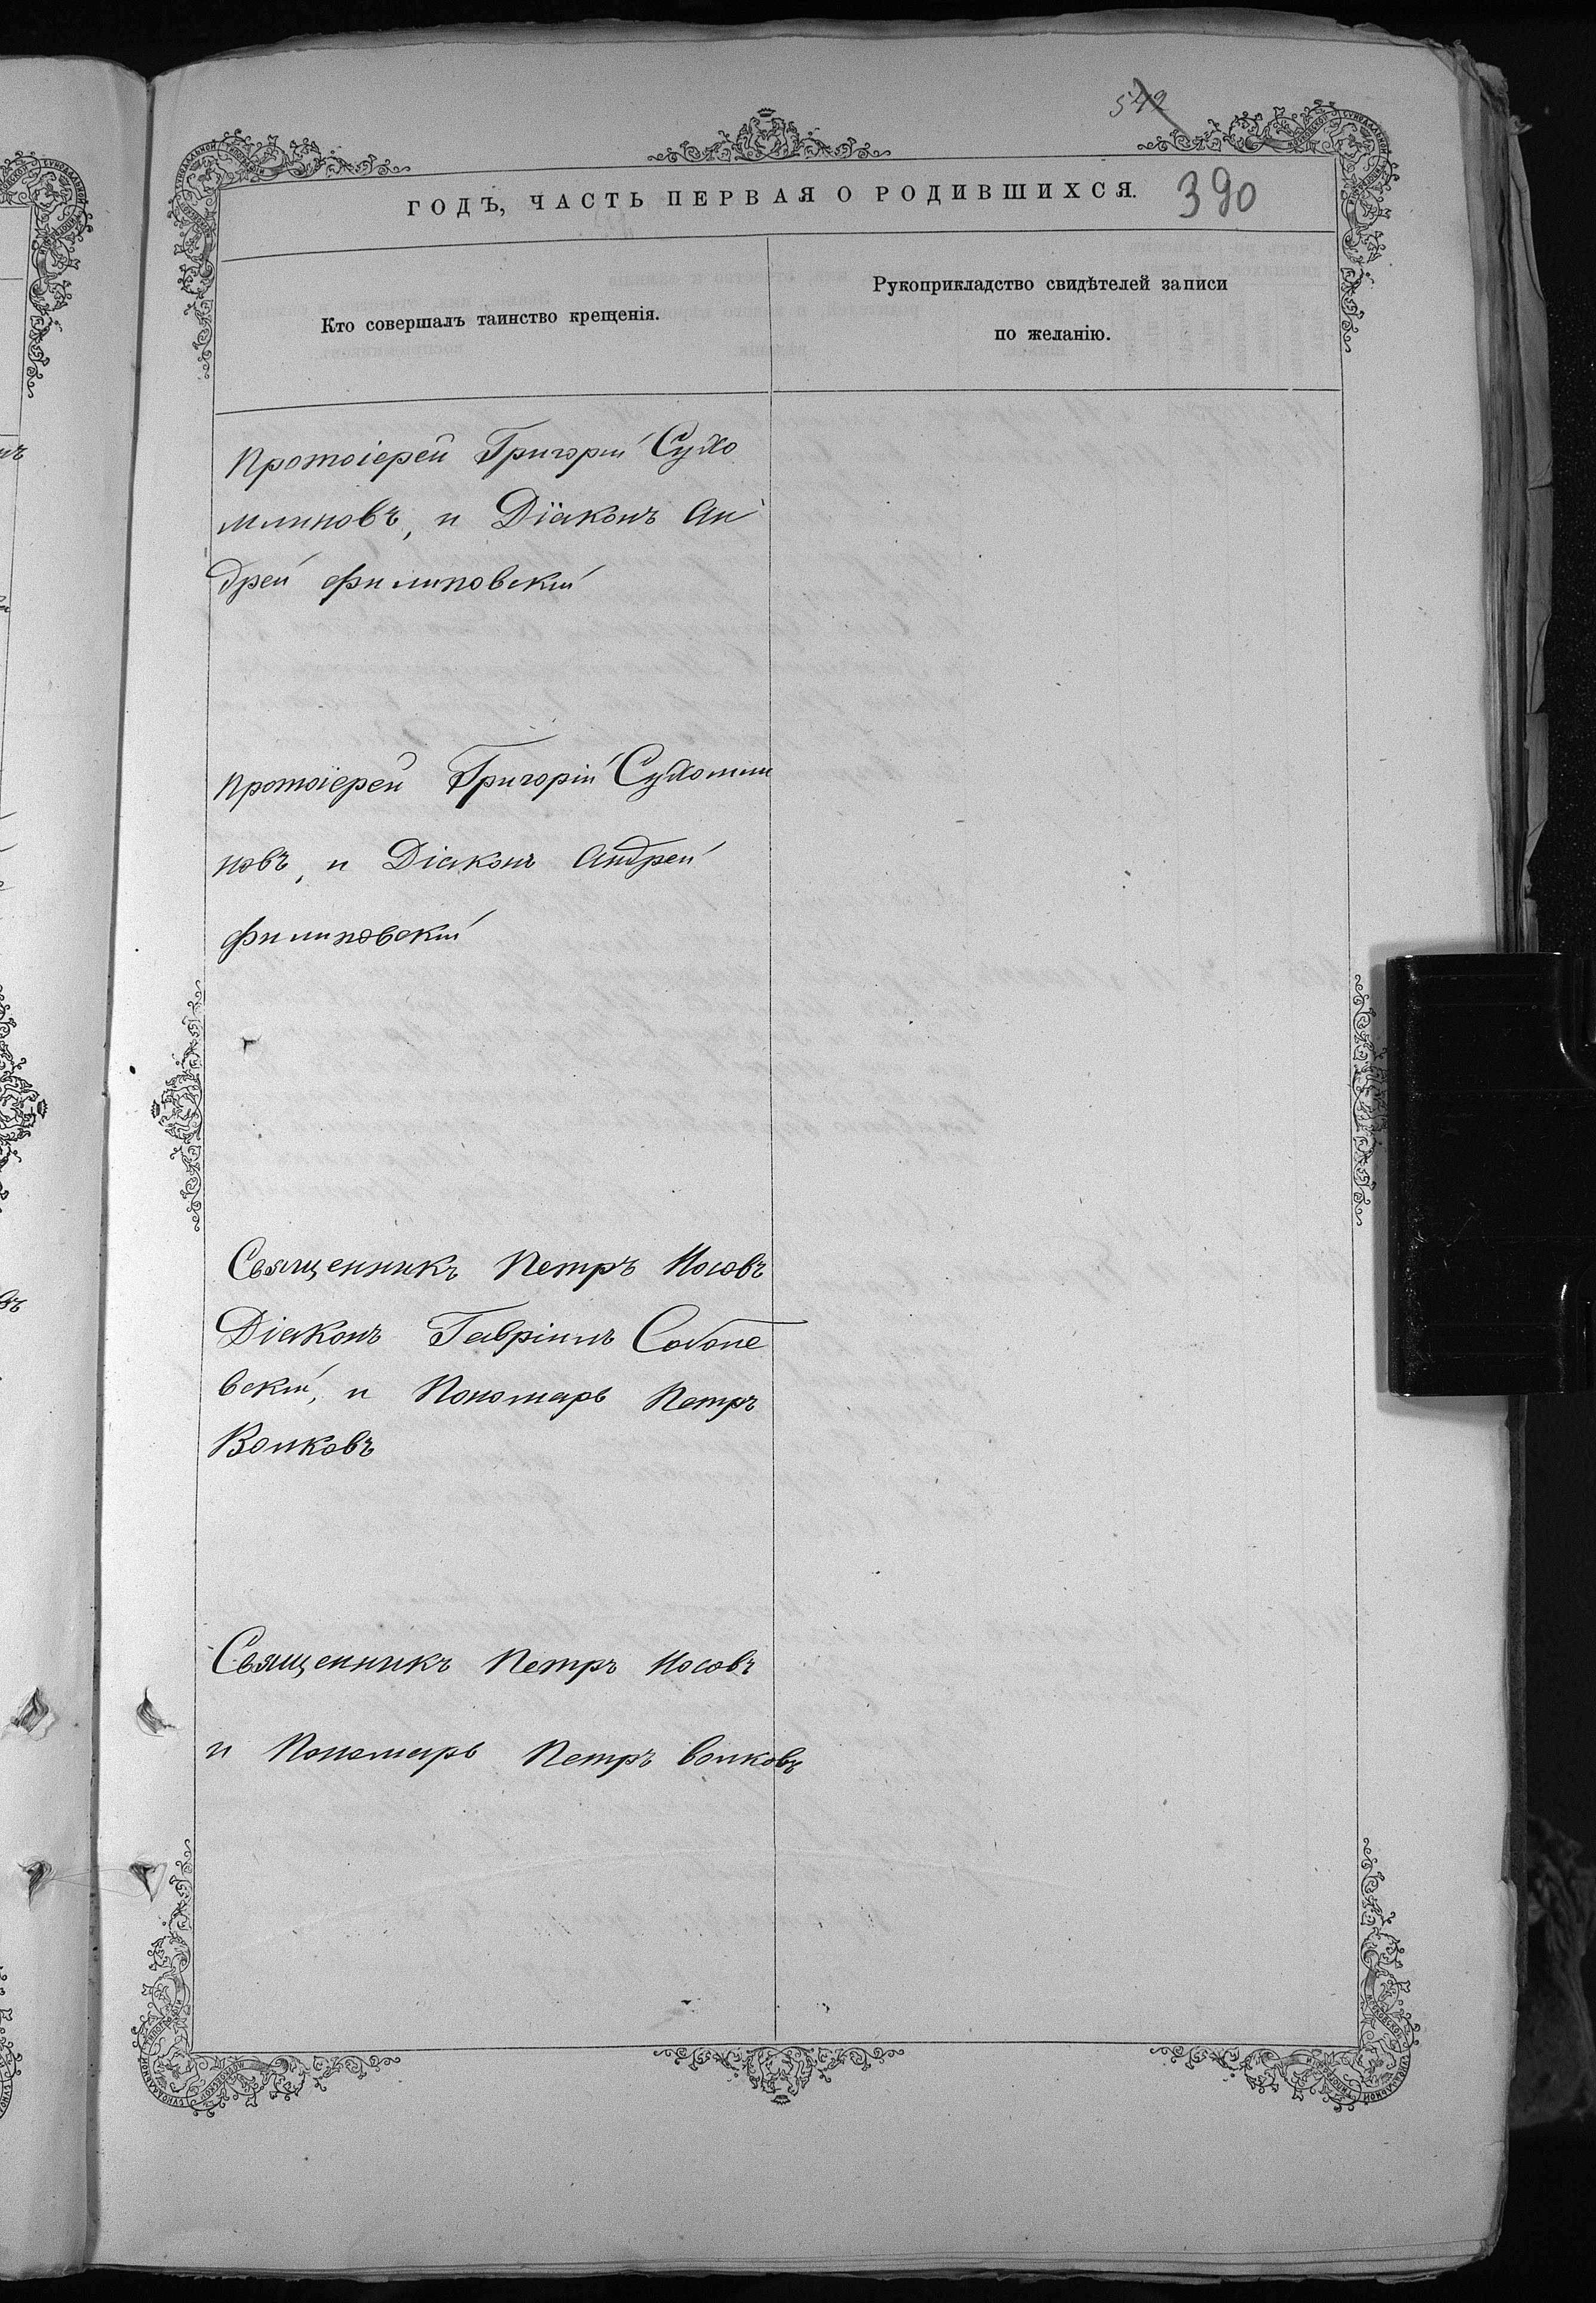 542
ГОДЪ, ЧАСТЬ ПЕРВАЯ О РОДИВШИХСЯ. 390
Кто совершалъ таинство крещенія.
Рукоприкладство свидѣтелей записи
по желанію.
Протоіерей Григорій Сухо
млиновъ, и Діаконъ Ан
дрей Филиповскій
Протоіерей Григорій Сухомли
новъ, и Діаконъ Андрей
Филиповскій
Священникъ Петръ Носовъ
Діаконъ Гавріилъ Соболе
вскій, и Пономарь Петръ
Волковъ
Священникъ Петръ Носовъ
и Пономарь Петръ Волковъ